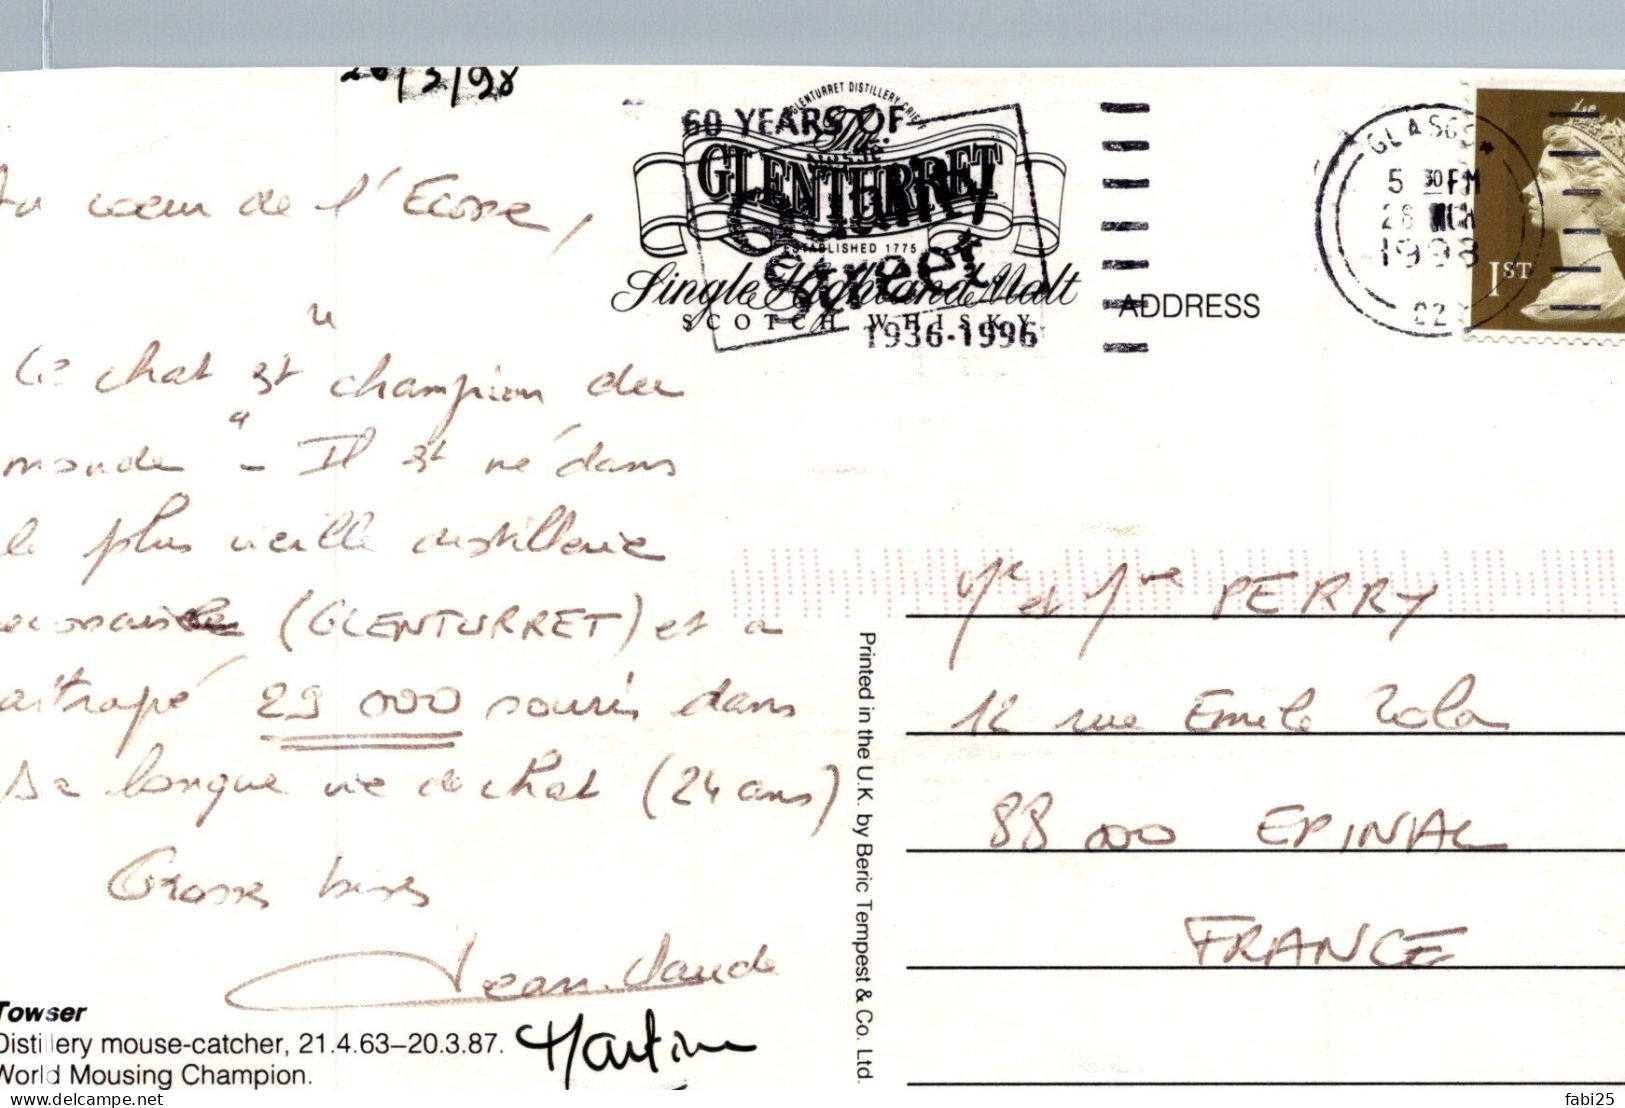 26/3/98
Au cœur de l'Ecosse,
Ce chat est "champion du
monde" - Il est né dans
la plus vieille distillerie
(GLENTURRET) et a
attrapé 29 000 souris dans
sa longue vie de chat (24 ans)
Grosses bises
Jean-Claude
Martine
Towser
Distillery mouse-catcher, 21.4.63–20.3.87.
World Mousing Champion.
GLENTURRET DISTILLERY CRIEFF
The
GLENTURRET
ESTABLISHED 1775
Single Highland Malt
SCOTCH WHISKY
60 YEARS OF
Street
1936-1996
ADDRESS
GLASGOW
5 30PM
28 MCH
1998
1ST
Printed in the U.K. by Beric Tempest & Co. Ltd.
Mr et Mme PERRY
12 rue Emile Zola
88 000 EPINAL
FRANCE
fabi25